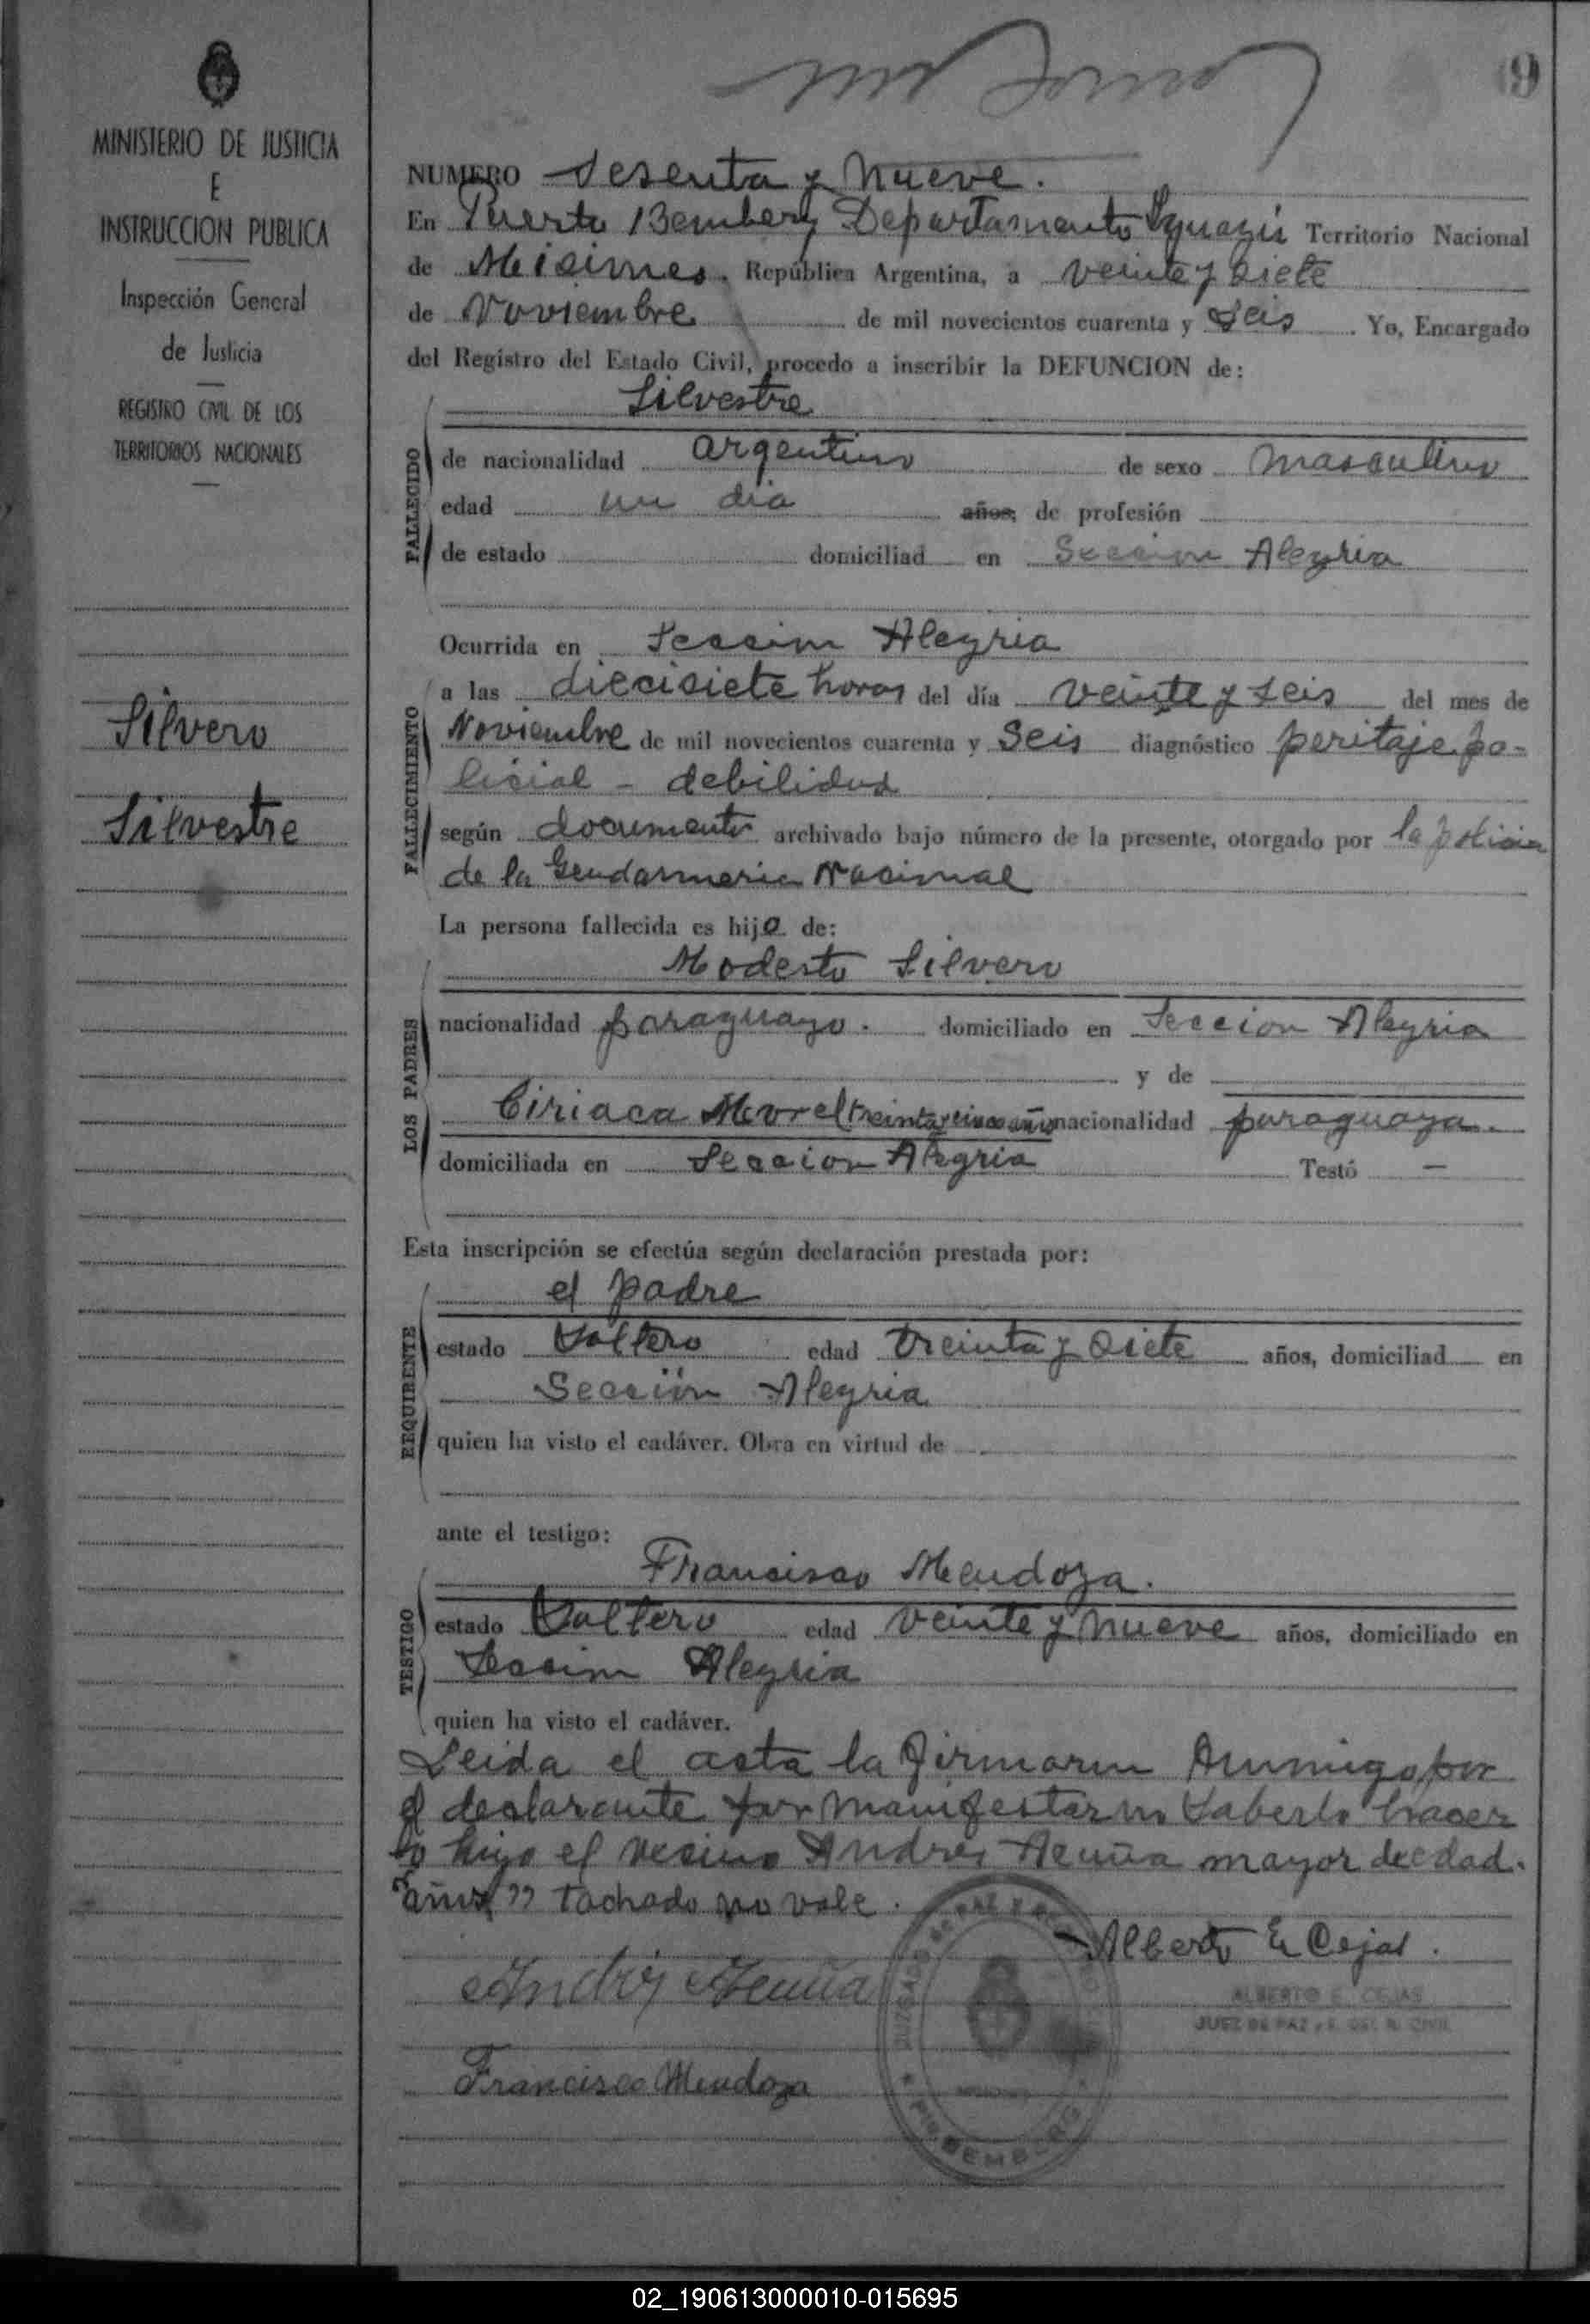 9
MINISTERIO DE JUSTICIA
E
INSTRUCCION PUBLICA
Inspección General
de Justicia
REGISTRO CIVIL DE LOS
TERRITORIOS NACIONALES
Silvero
Silvestre
NUMERO Sesenta y Nueve.
En Puerto Bemberg Departamento Iguazú Territorio Nacional
de Misiones. República Argentina, a veinte y siete
de Noviembre de mil novecientos cuarenta y seis. Yo, Encargado
del Registro del Estado Civil, procedo a inscribir la DEFUNCION de:
Silvestre
FALLECIDO
de nacionalidad argentino de sexo masculino
edad un dia años, de profesión
de estado domiciliad en Seccion Alegria
Ocurrida en Seccion Alegria
FALLECIMIENTO
a las diecisiete horas del día veinte y seis del mes de
Noviembre de mil novecientos cuarenta y Seis diagnóstico peritaje po-
licial - debilidad
según documento archivado bajo número de la presente, otorgado por la policia
de la Gendarmeria Nacional
La persona fallecida es hijo de:
LOS PADRES
Modesto Silvero
nacionalidad paraguayo. domiciliado en Seccion Alegria
y de
Ciriaca Morel treinta y cinco años nacionalidad paraguaya.
domiciliada en Seccion Alegria Testó —
Esta inscripción se efectúa según declaración prestada por:
REQUIRENTE
el padre
estado Soltero edad treinta y siete años, domiciliad en
Sección Alegria
quien ha visto el cadáver. Obra en virtud de
ante el testigo:
TESTIGO
Francisco Mendoza.
estado Soltero edad veinte y nueve años, domiciliado en
Seccion Alegria
quien ha visto el cadáver.
Leida el acta la firmaron conmigo, por
el declarante por manifestar no saberlo hacer
lo hizo el vecino Andres Acuña mayor de edad.
"años" tachado no vale.
Alberto E Cejas.
Andrés Acuña
ALBERTO E. CEJAS
JUEZ DE PAZ y E. DEL R. CIVIL
Francisco Mendoza
JUZGADO DE PAZ
BEMBERG
02_190613000010-015695